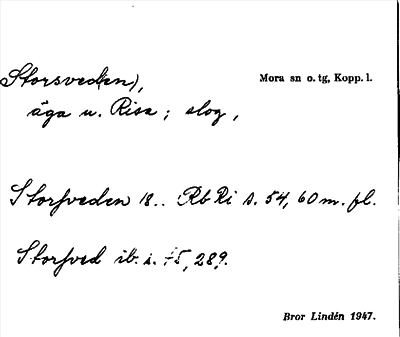 Storsved(en), Mora sn o. tg, Kopp. l.
äga u. Risa; slog,
Storsveden 18.. Rb Ri s. 54, 60 m. fl.
Storsved ib. s. 75, 289.
Bror Lindén 1947.